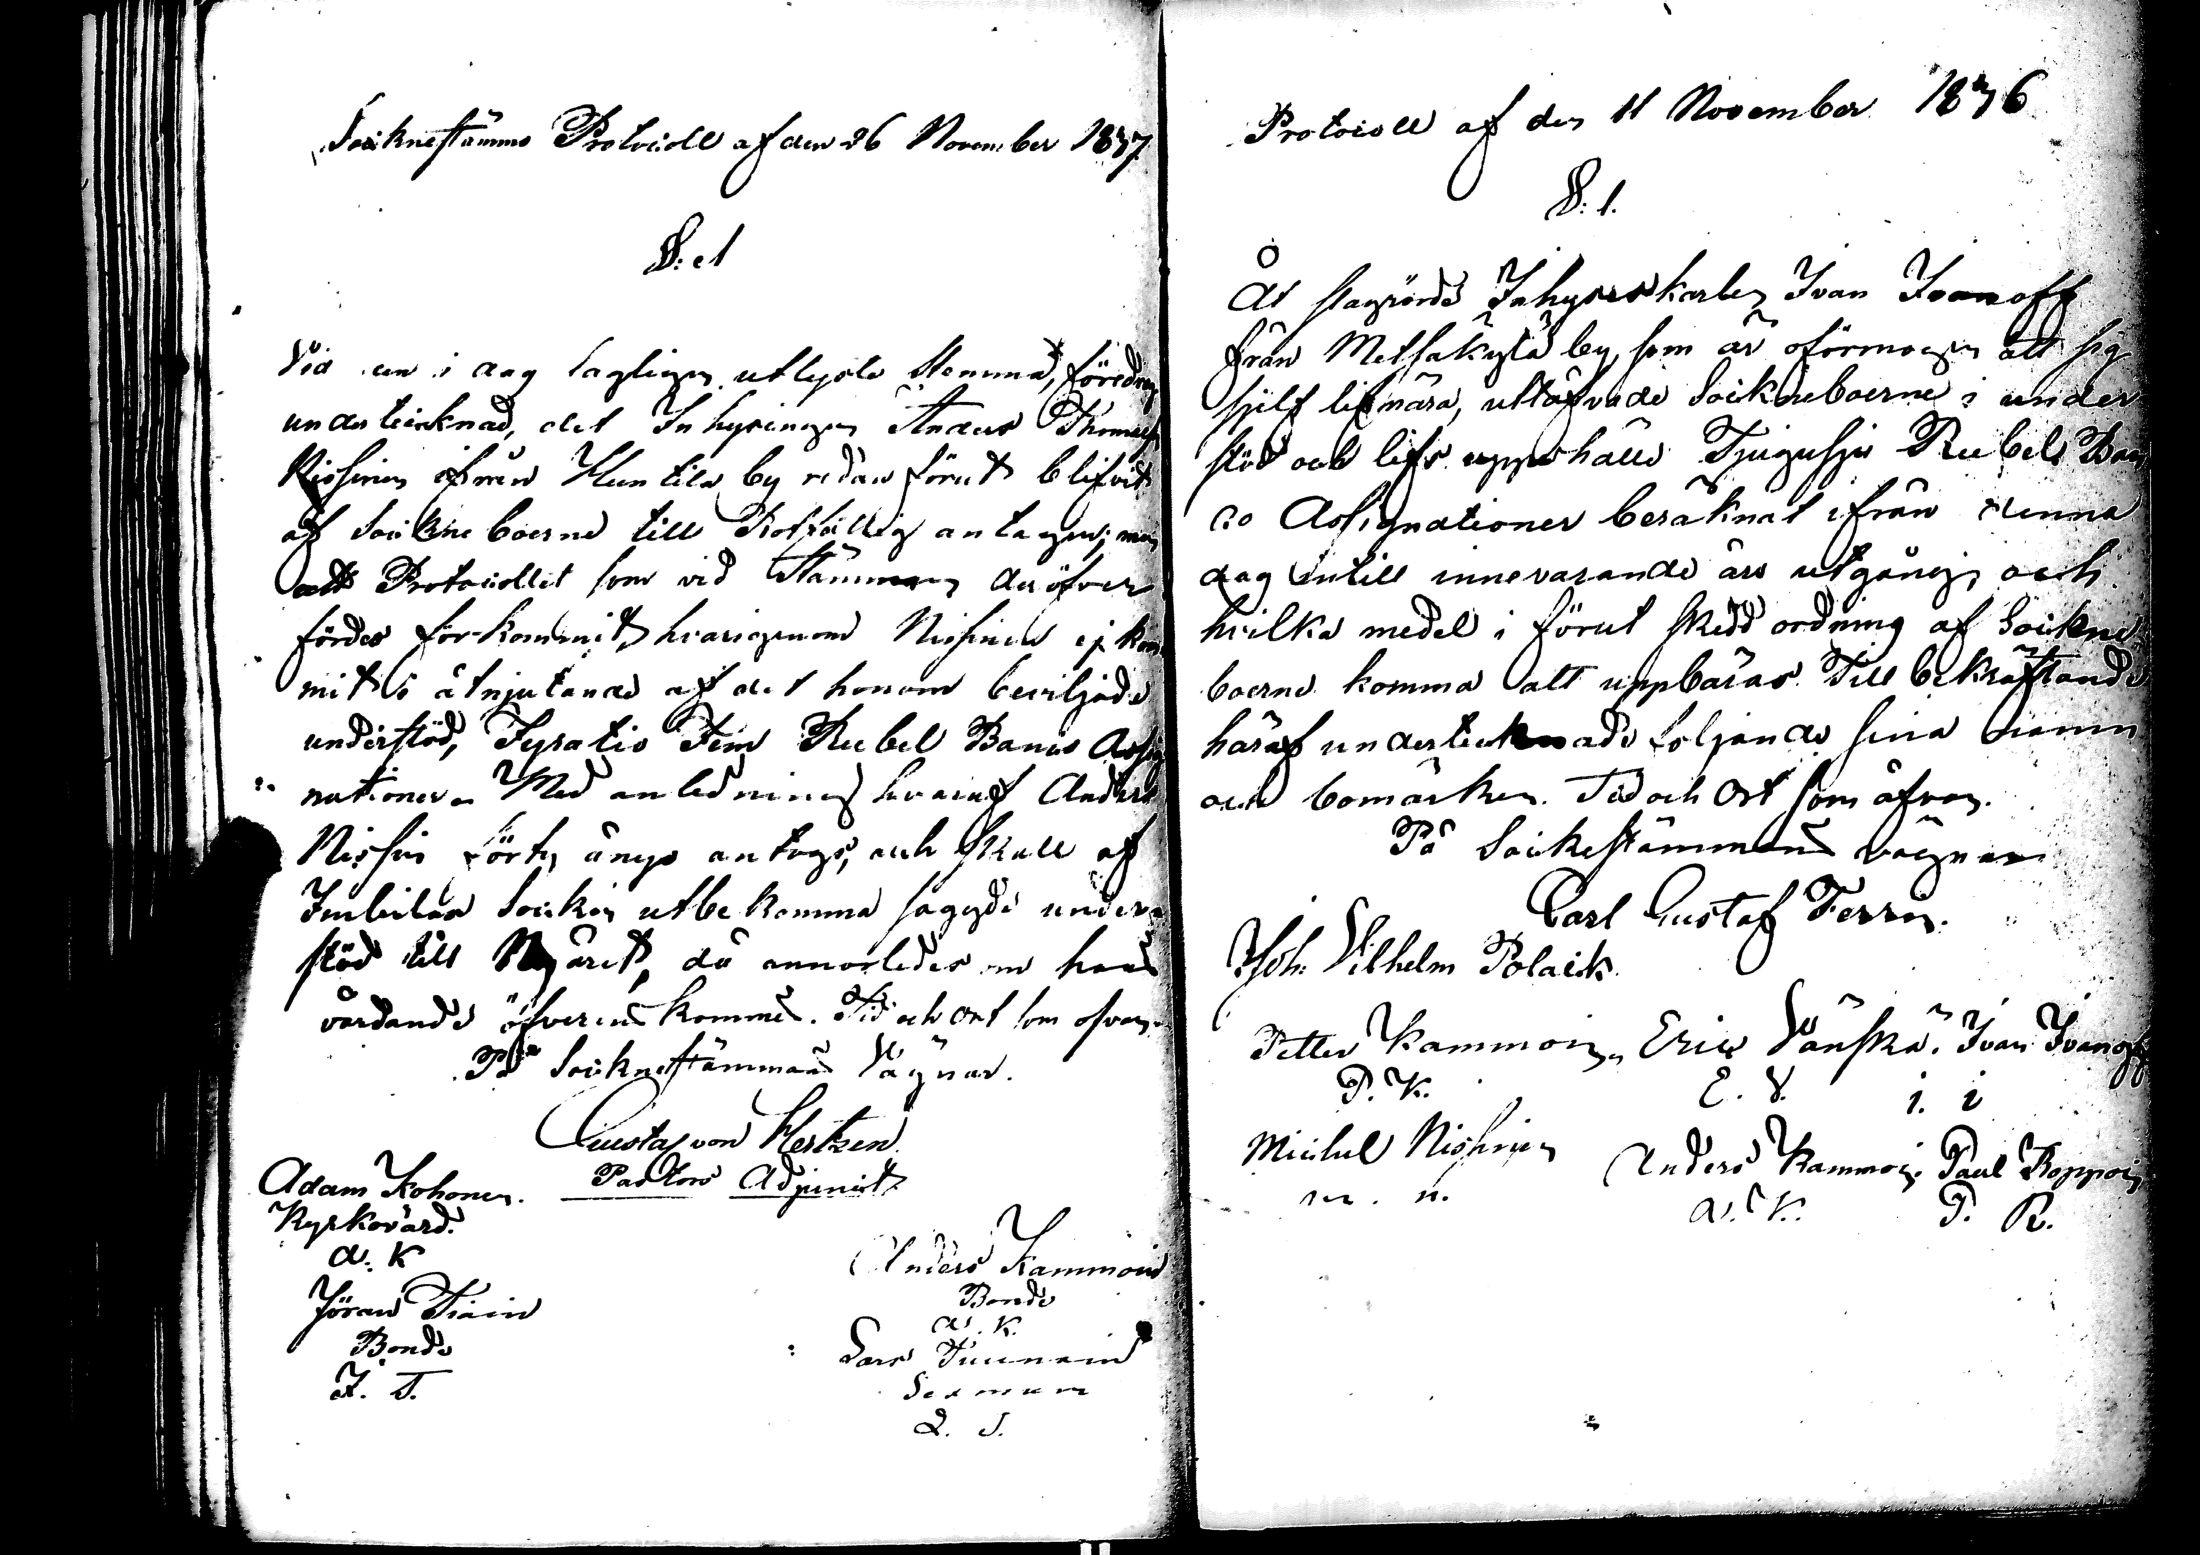 Socknestämmo Protocoll af den 26 November 1837
§: 1
Vid en i dag lagligen utlyste Stemma, föredrog
undertecknad, det Inhysingen Anders Thomass
Nissinen ifrån Huntila by redan förut blifvit
af Sockneboerne till Rotfattig antagen; men
att Protocollet som vid Stämman deröfver
fördes för-kommit, hvarigenom Nissinen ej kom
mit i åtnjutande af det honom beviljade
understöd, Fyratio Fem Rubel Banco Assig
nationer. Med anledning hvaraf Anders
Nissin ånyo antogs, och skall af
Imbilax Socken utbekomma sagde under
stöd till Nyåret, då annorledes om hans
vårdande öfverenskommes. Tid och Ort som ofvan.
På Socknestämmans Vägnar.
Gustaf von Hertzen
Pastors Adjunct
Adam Kohonen.
Kyrkovärd.
A. K
Jöran Tiain
Bonde
J. T.
Anders Kammoin
Bonde
A. K.
Lars Tuunain
Sexman
L. T.
Protocoll af den 11 November 1836
§: 1.
Åt Inhyseskarlen Ivan Ivanoff
från Metsäkylä by, som är oförmogen att sig
sjelf lifnära, Sockneboerne i under
stöd och lifs uppehälle Tjugusju Rubel Ban
co Assignationer beräknat ifrån denna
dag intill innevarande års utgång, och
hvilka medel i förut skedd ordning af Sockne
boerne komma att uppbäras. Till bekräftande
häraf undertecknade följande sina namn
och bomärken. Tid och Ort som åfvan.
På Sockestämmans vägnar
Carl Gustaf Ferrin.
Joh: Vilhelm Polack.
Petter Kammoin, Eric Vänskä. Ivan Ivanoff
P. K. E. V. i. i
Michel Nissinen Anders Kammoin. Paul Roppoin
m. n. A. K. P. R.